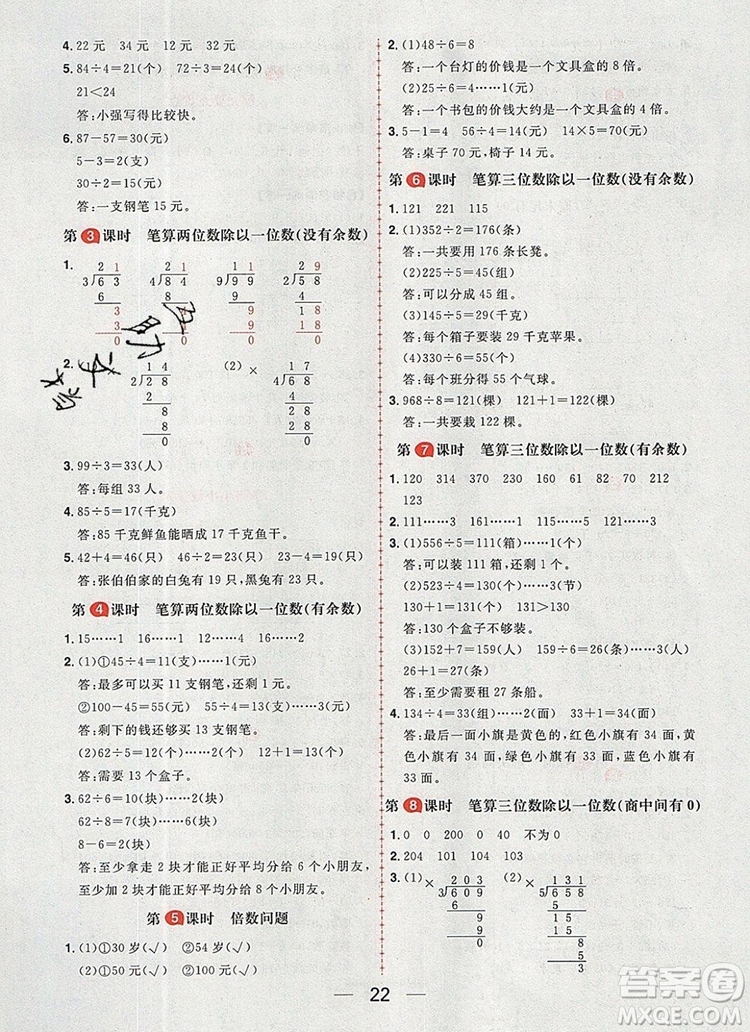 4. 22 元　34 元　12 元　2 元
5. 84÷4=21(个)　72÷3=24(个)
21<24
答:小强写得比较快。
6. 87－57=30(元)
5－3=2(支)
30÷2=15(元)
答:一支钢笔 15 元。
第3课时　笔算两位数除以一位数(没有余数)
1.
2 1　2 1　1 1　2 9
3)6 3　4)8 4　9)9 9　2)5 8
6　8　9　4
3　4　9　1 8
3　4　9　1 8
0　0　0　0
2.
1 4　(2) ×　1 7
2)2 8　4)6 8
2　4
8　2 8
8　2 8
0　0
3. 99÷3=33(人)
答:每组 33 人。
4. 85÷5=17(千克)
答:85 千克鲜鱼能晒成 17 千克鱼干。
5. 42+4=46(只)　46÷2=23(只)　23－4=19(只)
答:张伯伯家的白兔有 19 只,黑兔有 23 只。
第4课时　笔算两位数除以一位数(有余数)
1. 15……1　16……1　12……4　16……2
2. (1)①45÷4=11(支)……1(元)
答:最多可以买 11 支钢笔,还剩 1 元。
②100－45=55(元)　55÷4=13(个)……3(元)
答:剩下的钱还够买 13 个文具盒。
(2)62÷5=12(个)……2(个)　12+1=13(个)
答:需要 13 个盒子。
3. 62÷6=10(块)……2(块)
62÷8=7(块)……6(块)
8－6=2(块)
答:至少拿走 2 块才能正好平均分给 6 个小朋友,
至少添加 2 块才能正好平均分给 8 个小朋友。
第5课时　倍数问题
1. (1)①30 岁(√)　②54 岁(√)
(2)①50 元(√)　②100 元(√)
2. (1)48÷6=8
答:一个台灯的价钱是一个文具盒的 8 倍。
(2)25÷6=4(倍)……1(元)
答:一个书包的价钱大约是一个文具盒的 4 倍。
3. 5－1=4　56÷4=14(元)　14×5=70(元)
答:桌子 70 元,椅子 14 元。
第6课时　笔算三位数除以一位数(没有余数)
1. 121　221　115
2. (1)352÷2=176(条)
答:一共要用 176 条长凳。
(2)225÷5=45(组)
答:可以分成 45 组。
(3)145÷5=29(千克)
答:每个箱子要装 29 千克苹果。
(4)330÷6=55(个)
答:每个班分得 55 个气球。
3. 968÷8=121(棵)　121+1=122(棵)
答:一共要栽 122 棵。
第7课时　笔算三位数除以一位数(有余数)
1. 120　314　370　131　60　82　70　212
123
2. 111……3　161……1　115……5　131……3
3. (1)556÷5=111(箱)……1(个)
答:可以装 111 箱,还剩 1 个。
(2)523÷4=130(个)……3(节)
130+1=131(个)　131>130
答:130 个盒子不够装。
(3)152+7=159(人)　159÷6=26(条)……3(人)
26+1=27(条)
答:至少需要租 27 条船。
4. 134÷4=33(组)……2(面)　33+1=34(面)
答:最后一面小旗是黄色的,红色小旗有 34 面,
黄色小旗有 34 面,绿色小旗有 33 面,蓝色小旗有
33 面。
第8课时　笔算三位数除以一位数(商中间有 0)
1. 0　0　200　0　40　不为 0
2. 204　101　104　103
3. (1) ×　2 0 3　(2) ×　1 3 1
3)6 0 9　5)6 5 8
6　5
9　1 5
9　1 5
0　8
5
3
22
答案圈
MXQE.COM